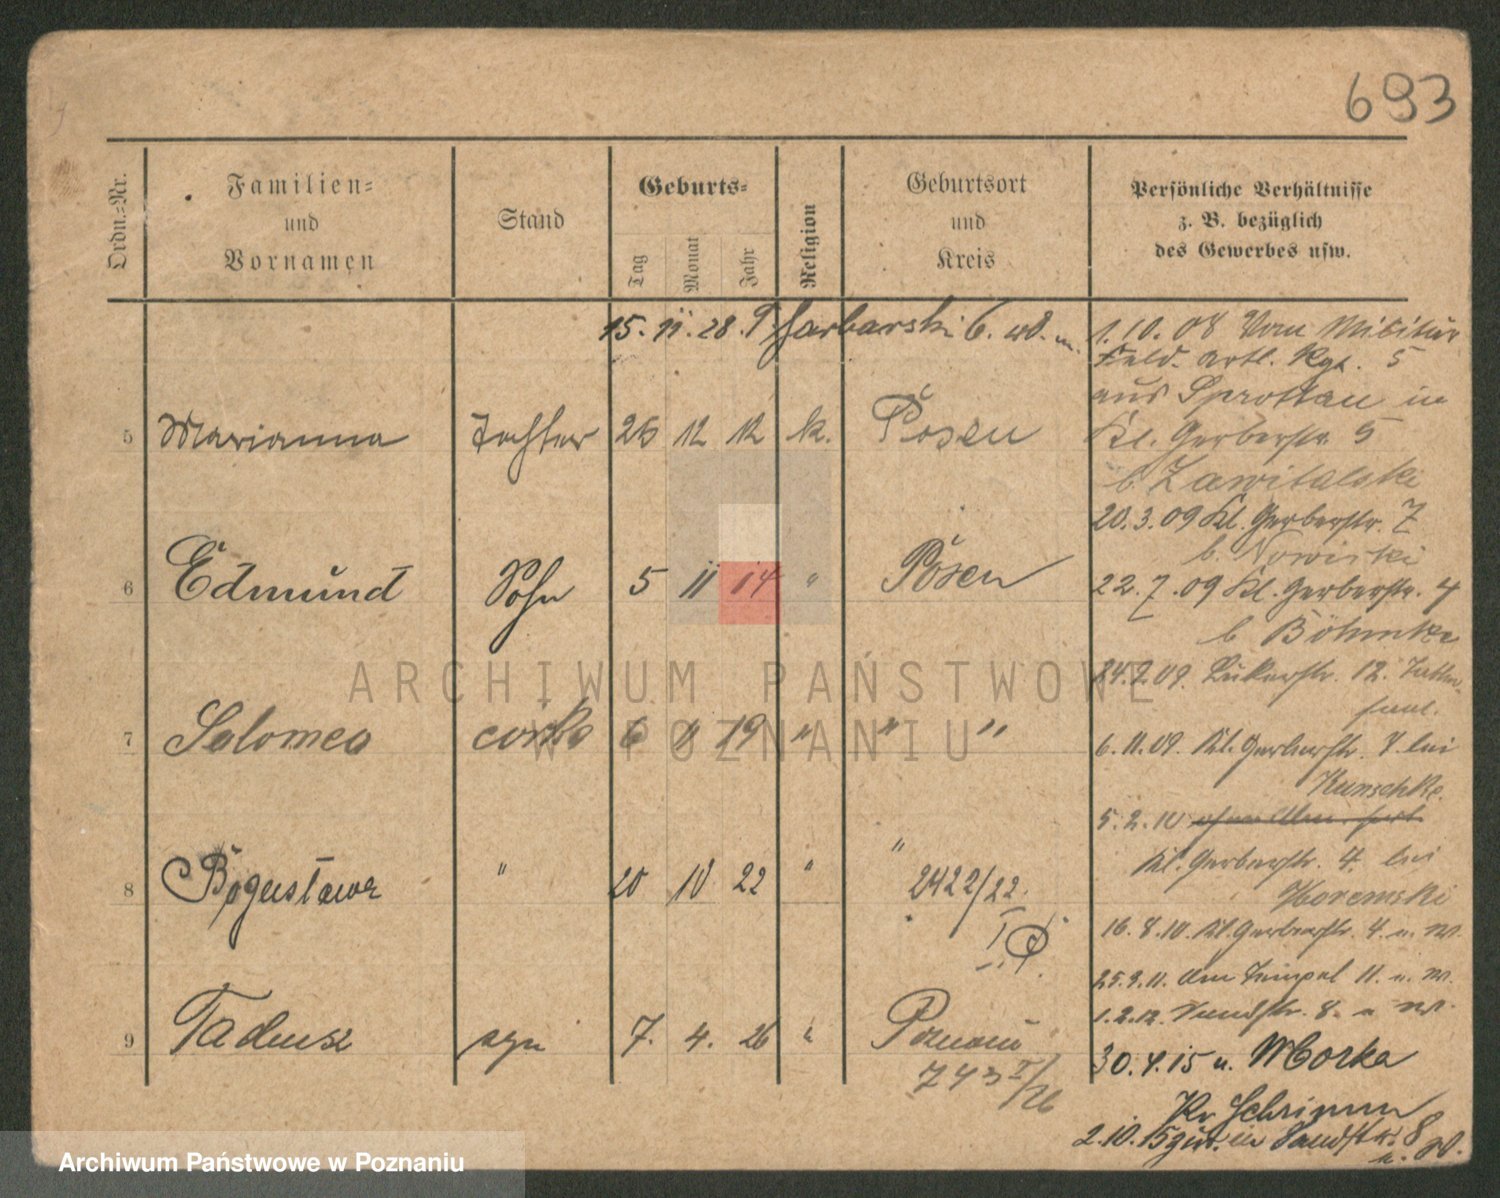 693
Ordn.-Nr.
Familien-
und
Vornamen
Stand
Geburts-
Tag
Monat
Jahr
Religion
Geburtsort
und
Kreis
Persönliche Verhältnisse
z. B. bezüglich
des Gewerbes usw.
15. 11. 28. Garbarski 6. W. m.
1.10.08 Vom Militär
Feld. Artl. Rgt. 5
aus Sprottau in
Kl. Gerberstr. 5
b. Zawitalski
20.3.09 Kl. Gerberstr. 7
b. Nowiski
22.7.09 Kl. Gerberstr. 4
b Böhmke
24.7.09. 12.
6.11.09. Kl. Gerberstr. 7 bei
Kunschke.
5.2.10
Kl. Gerberstr. 4. bei
Horemski
16.8.10. Kl. Gerberstr. 4. u. W.
25.9.11. Am Tempel 11. u. W.
1.2.12. Sandstr. 8. u W.
30.4.15 u. Morka
Kr Schrimm
2.10.15 zur. in Sandstr. 8
u. W.
5 Marianna Tochter 26 12 12 k. Posen
6 Edmund Sohn 5 11 14 " Posen
7 Salomea córka 6 " 19 " " "
8 Bogusława " 20 10 22 " "
2422/22.
I
9 Tadeusz syn 7. 4. 26 " Poznań
743 I/26
ARCHIWUM PAŃSTWOWE
W POZNANIU
Archiwum Państwowe w Poznaniu